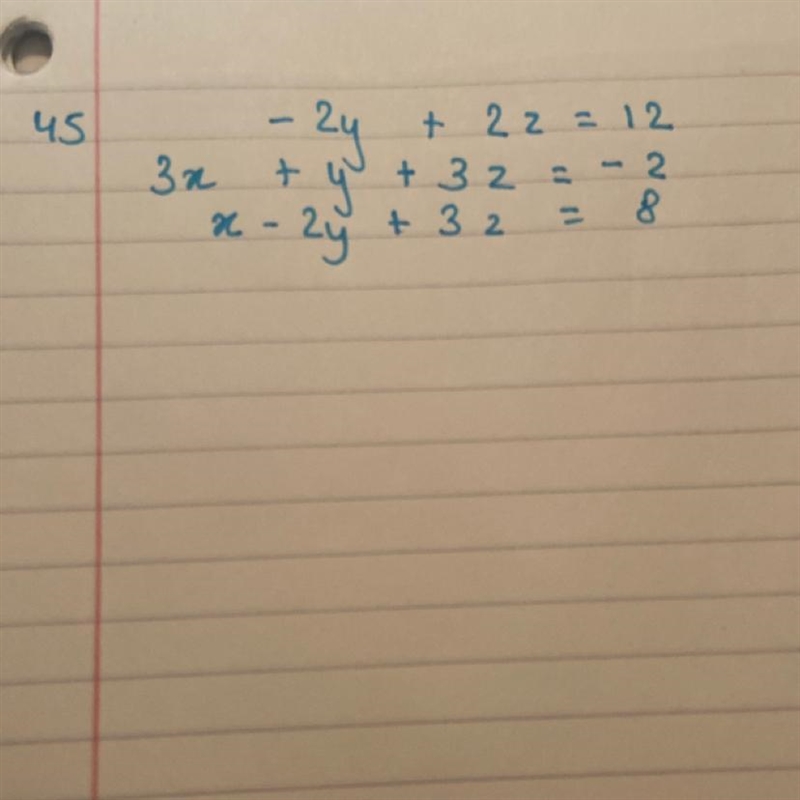 45 - 2y + 2z = 12
3x + y + 3z = - 2
x - 2y + 3z = 8